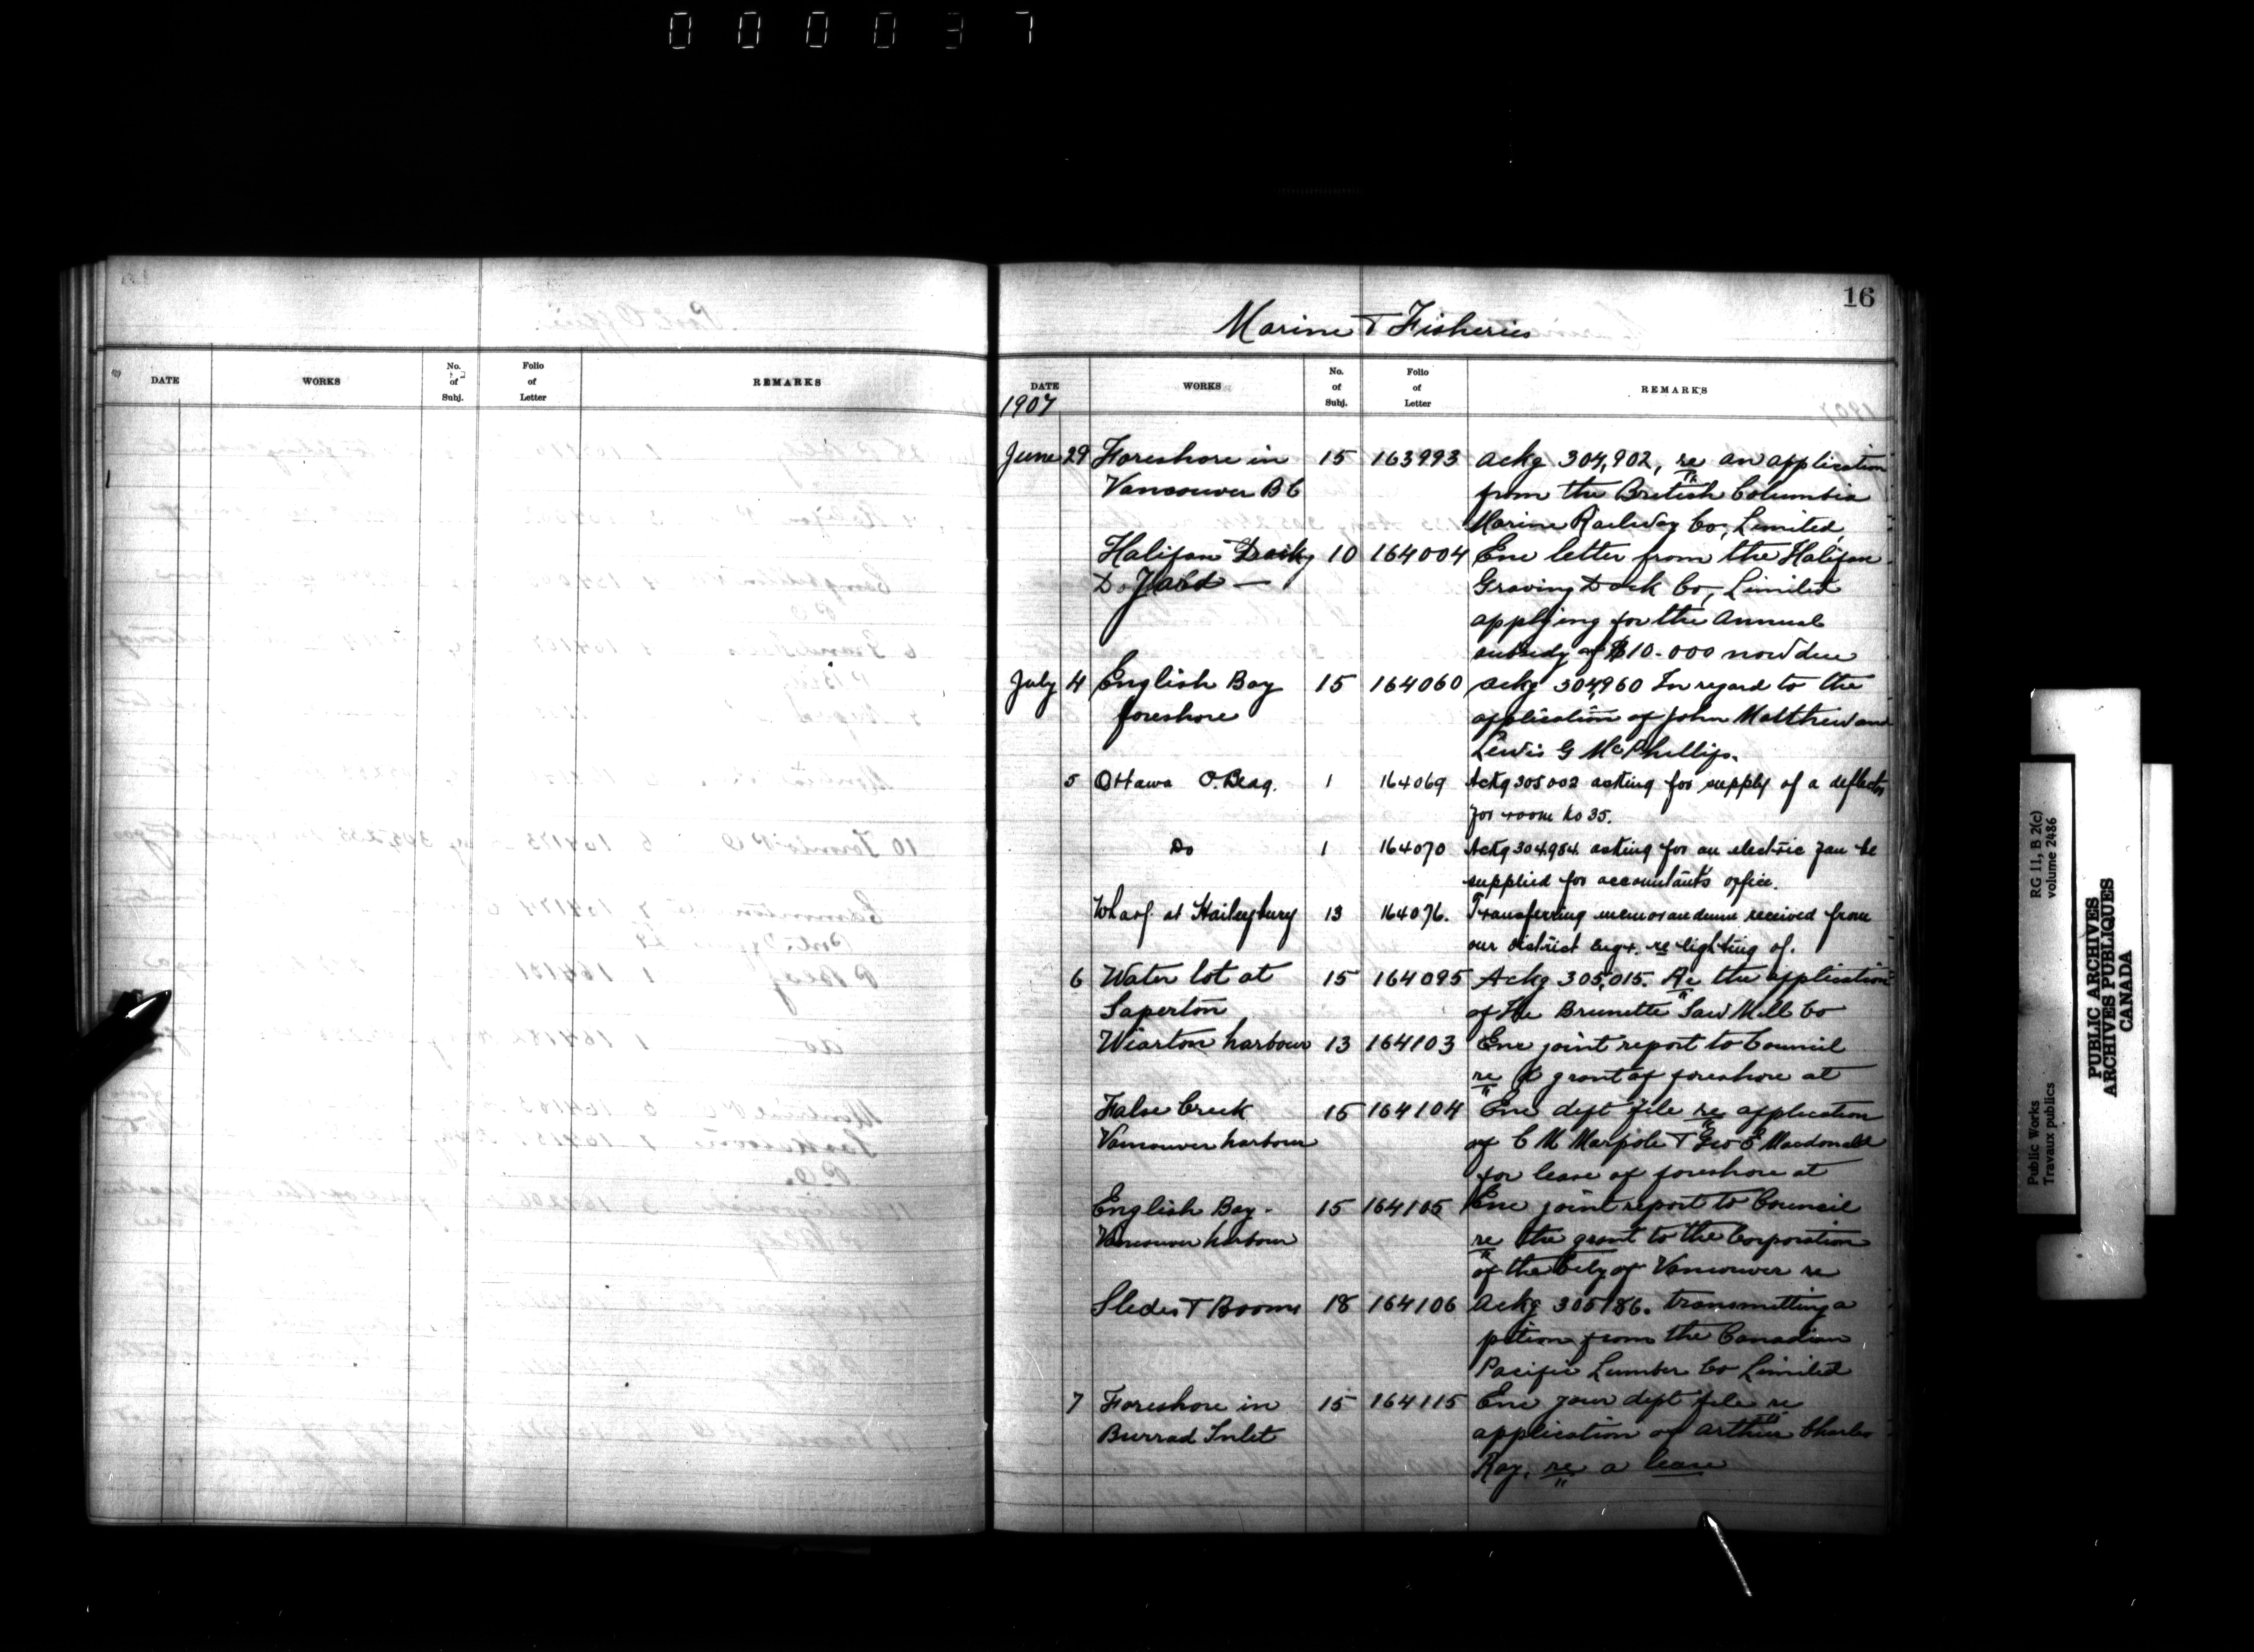 000037
16
Marine & Fisheries
DATE WORKS No. of Subj. Folio of Letter REMARKS
DATE WORKS No. of Subj. Folio of Letter REMARKS
1907
June 29 Foreshore in 15 163993 Ackg 304,902, re an application
Vancouver B C from the British Columbia
Marine Railway Co, Limited,
Halifax 10 164004 Enc letter from the Halifax
Graving Dock Co, Limited
applying for the annual
subsidy of $10.000 now due
July 4 English Bay 15 164060 Ackg 304,960 In regard to the
foreshore application of John Matthew and
Lewis G McPhillips.
5 Ottawa O. Bldg. 1 164069 Ackg 305002 asking for supply of a deflector
for room No 35.
Do 1 164070 Ackg 304984 asking for an electric fan be
supplied for accountants office.
Wharf at Haileybury 13 164076. Transferring memorandum received from
our district engr. re lighting of.
6 Water lot at 15 164095 Ackg 305,015. Re the application
Saperton of the Brunette Saw Mill Co
Wiarton harbour 13 164103 Enc joint report to Council
re a grant of foreshore at
False Creek 15 164104 Enc dept file re application
Vancouver harbour of C M Marpole & Geo E Macdonald
for lease of foreshore at
English Bay - 15 164105 Enc joint report to Council
Vancouver harbour re the grant to the Corporation
of the City of Vancouver re
Sledes & Booms 18 164106 Ackg 305186. transmitting a
petion from the Canadian
Pacific Lumber Co Limited
7 Foreshore in 15 164115 Enc your dept file re
Burrad Inlet application of Arthur Charles
Ray, re a lease
Public Works RG 11, B 2(c)
Travaux publics volume 2486
PUBLIC ARCHIVES
ARCHIVES PUBLIQUES
CANADA